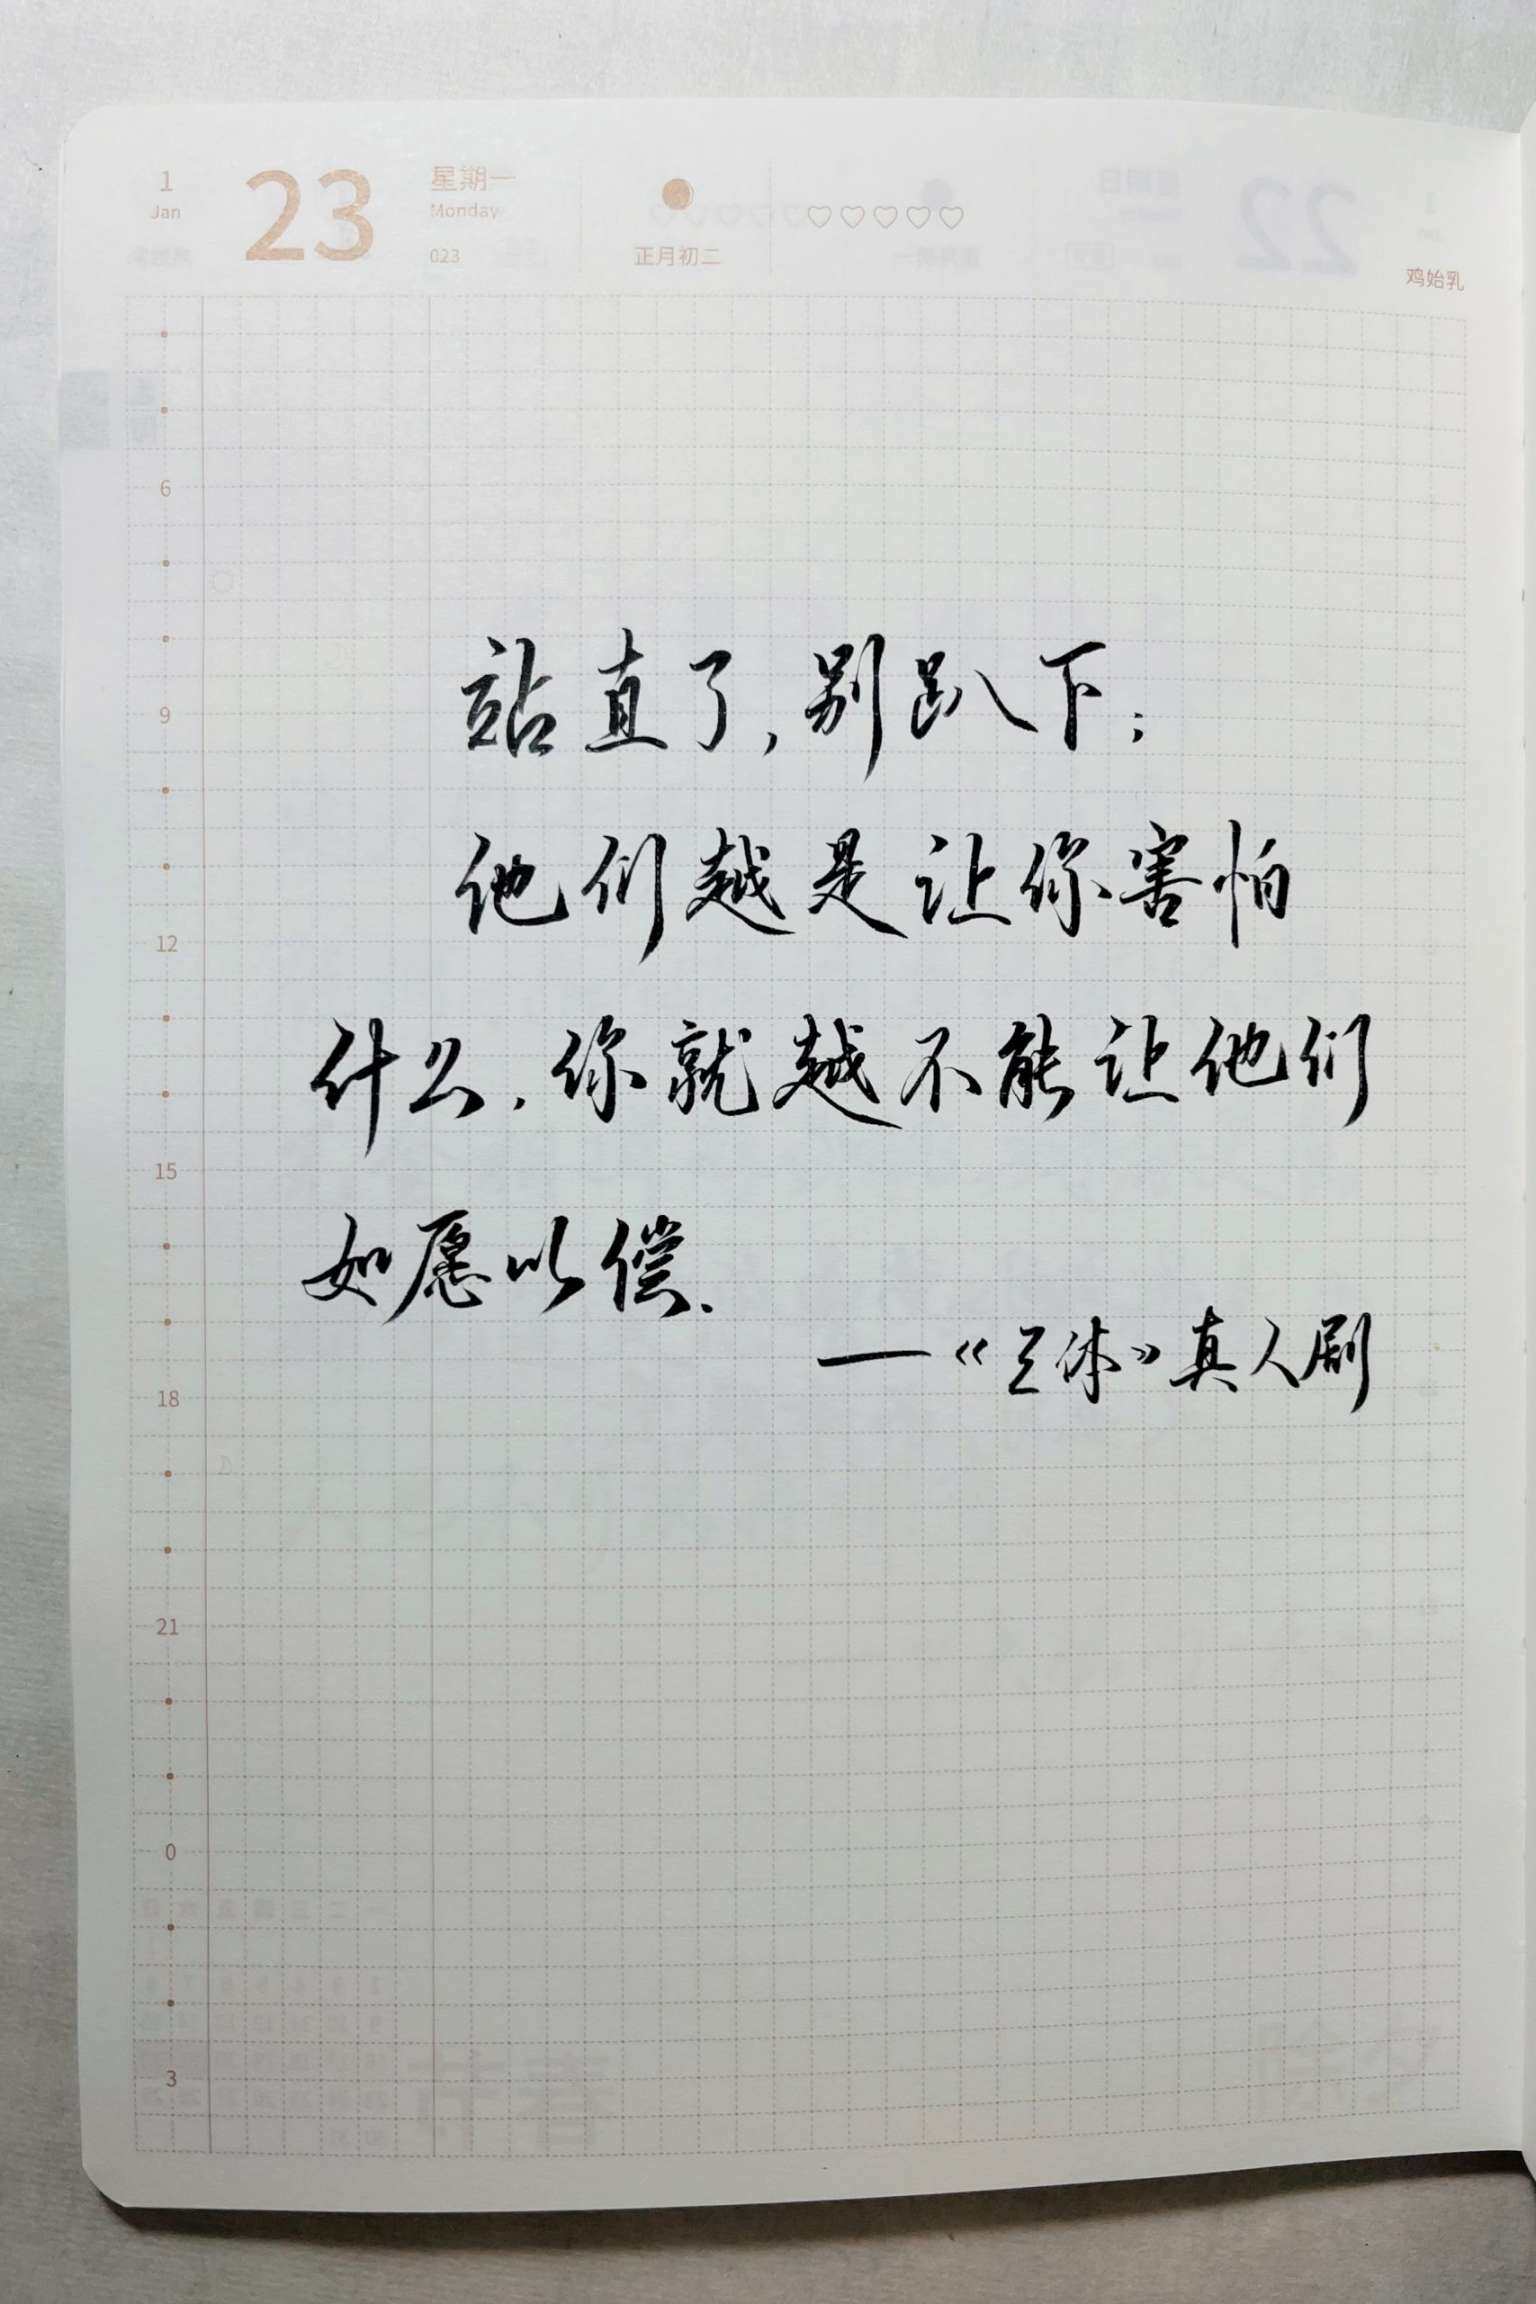 1
Jan
23
星期一
Monday
023
正月初二
鸡始乳
6
9
12
15
18
21
0
3
站直了,别趴下;
他们越是让你害怕
什么,你就越不能让他们
如愿以偿.
—《三体》真人剧